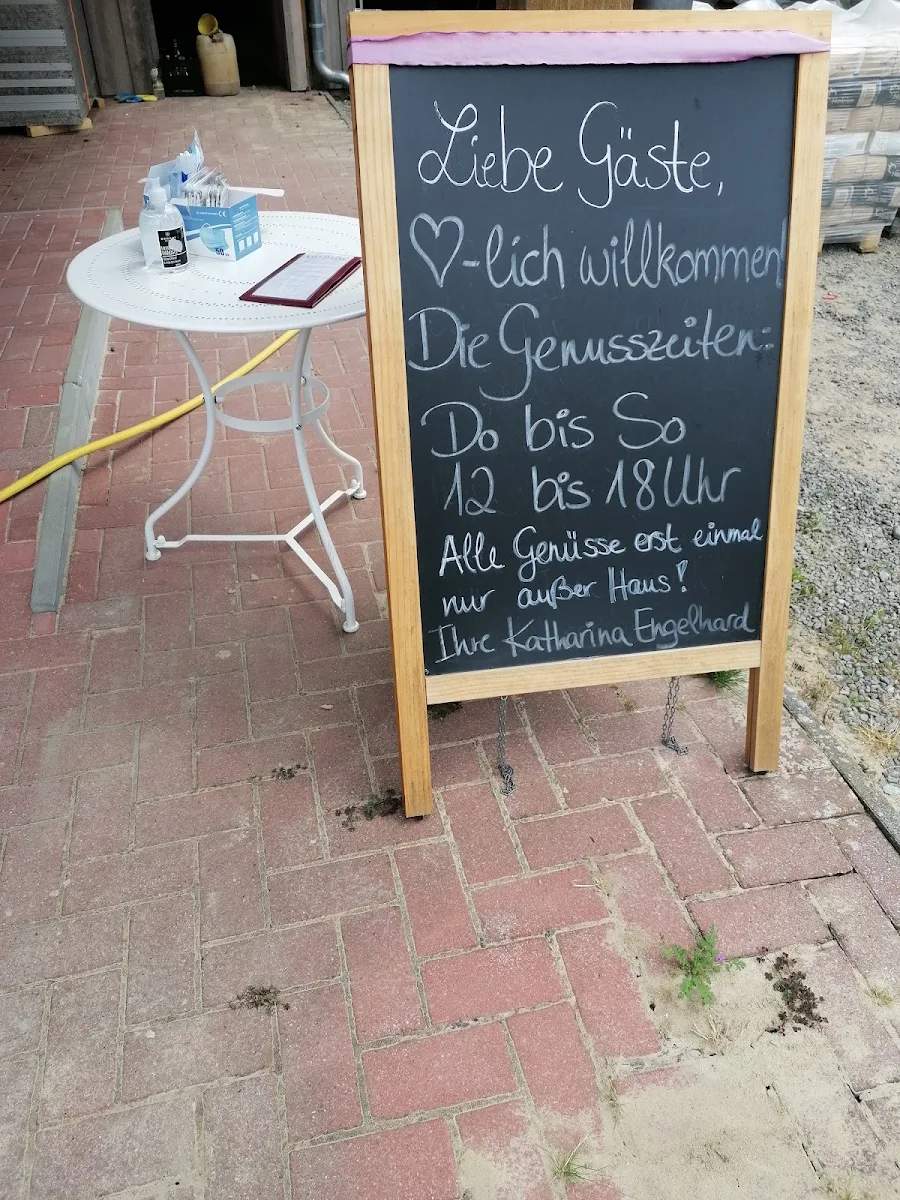 Liebe Gäste,
♡-lich willkommen!
Die Genusszeiten:
Do bis So
12 bis 18 Uhr
Alle Genüsse erst einmal
nur außer Haus!
Ihre Katharina Engelhard